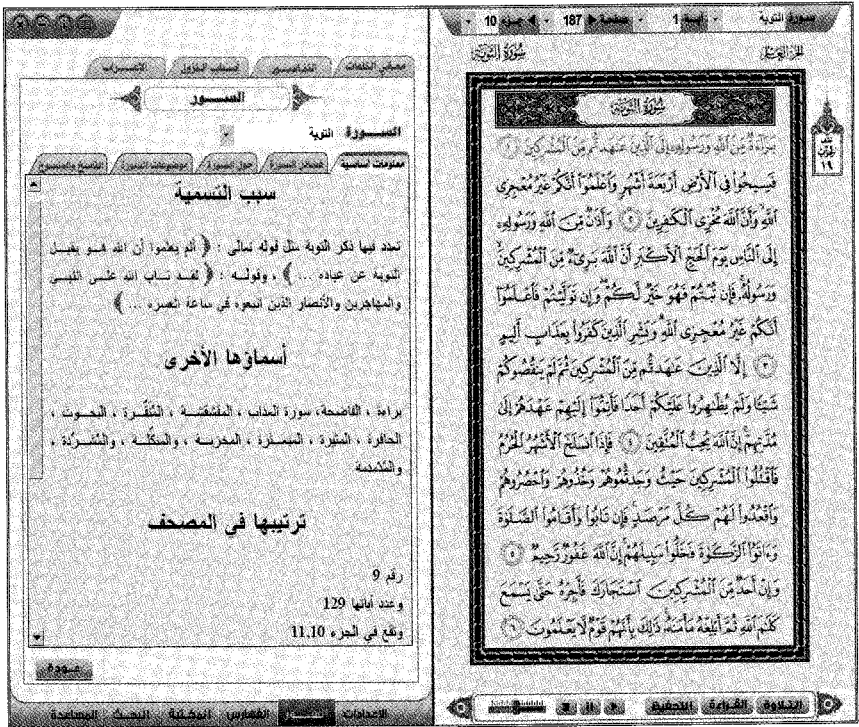 سورة التوبة آية 1 صفحة 187 جزء 10
الجزء العاشر
سورة التوبة
سورة التوبة
بَرَآءَةٌ مِّنَ ٱللَّهِ وَرَسُولِهِۦٓ إِلَى ٱلَّذِينَ عَٰهَدتُّم مِّنَ ٱلْمُشْرِكِينَ ١
فَسِيحُوا۟ فِى ٱلْأَرْضِ أَرْبَعَةَ أَشْهُرٍ وَٱعْلَمُوٓا۟ أَنَّكُمْ غَيْرُ مُعْجِزِى
ٱللَّهِ وَأَنَّ ٱللَّهَ مُخْزِى ٱلْكَٰفِرِينَ ٢ وَأَذَٰنٌ مِّنَ ٱللَّهِ وَرَسُولِهِۦٓ
إِلَى ٱلنَّاسِ يَوْمَ ٱلْحَجِّ ٱلْأَكْبَرِ أَنَّ ٱللَّهَ بَرِىٓءٌ مِّنَ ٱلْمُشْرِكِينَ
وَرَسُولُهُۥ فَإِن تُبْتُمْ فَهُوَ خَيْرٌ لَّكُمْ وَإِن تَوَلَّيْتُمْ فَٱعْلَمُوٓا۟
أَنَّكُمْ غَيْرُ مُعْجِزِى ٱللَّهِ وَبَشِّرِ ٱلَّذِينَ كَفَرُوا۟ بِعَذَابٍ أَلِيمٍ
٣ إِلَّا ٱلَّذِينَ عَٰهَدتُّم مِّنَ ٱلْمُشْرِكِينَ ثُمَّ لَمْ يَنقُصُوكُمْ
شَيْـًٔا وَلَمْ يُظَٰهِرُوا۟ عَلَيْكُمْ أَحَدًا فَأَتِمُّوٓا۟ إِلَيْهِمْ عَهْدَهُمْ إِلَىٰ
مُدَّتِهِمْ إِنَّ ٱللَّهَ يُحِبُّ ٱلْمُتَّقِينَ ٤ فَإِذَا ٱنسَلَخَ ٱلْأَشْهُرُ ٱلْحُرُمُ
فَٱقْتُلُوا۟ ٱلْمُشْرِكِينَ حَيْثُ وَجَدتُّمُوهُمْ وَخُذُوهُمْ وَٱحْصُرُوهُمْ
وَٱقْعُدُوا۟ لَهُمْ كُلَّ مَرْصَدٍ فَإِن تَابُوا۟ وَأَقَامُوا۟ ٱلصَّلَوٰةَ
وَءَاتَوُا۟ ٱلزَّكَوٰةَ فَخَلُّوا۟ سَبِيلَهُمْ إِنَّ ٱللَّهَ غَفُورٌ رَّحِيمٌ ٥
وَإِنْ أَحَدٌ مِّنَ ٱلْمُشْرِكِينَ ٱسْتَجَارَكَ فَأَجِرْهُ حَتَّىٰ يَسْمَعَ
كَلَٰمَ ٱللَّهِ ثُمَّ أَبْلِغْهُ مَأْمَنَهُۥ ذَٰلِكَ بِأَنَّهُمْ قَوْمٌ لَّا يَعْلَمُونَ ٦
١٩
التلاوة القراءة التحفيظ
معاني الكلمات التفاسير أسباب النزول الإعراب
الســـور
الســـورة التوبة
معلومات أساسية فضائل السورة حول السورة موضوعات السورة
سبب التسمية
تعدد فيها ذكر التوبة مثل قوله تعالى : ﴿ ألم يعلموا أن الله هــو يقبــل
التوبة عن عباده ... ﴾ ، وقولــه : ﴿ لقــد تــاب الله علــى النبــي
والمهاجرين والأنصار الذين اتبعوه في ساعة العسرة ... ﴾
أسماؤها الأخرى
براءة ، الفاضحة، سورة العذاب ، المقشقشــة ، المُنَقِّــرة ، البحــوث ،
الحافرة ، المثيرة ، المبعــثرة ، المخزيــة ، والمنكِّلَــة ، والمُشَــرِّدة ،
والمُدَمدمة
ترتيبها في المصحف
رقم 9
وعدد آياتها 129
وتقع في الجزء 11,10
عــودة
الاعدادات الفهارس المكتبة البحث المساعدة